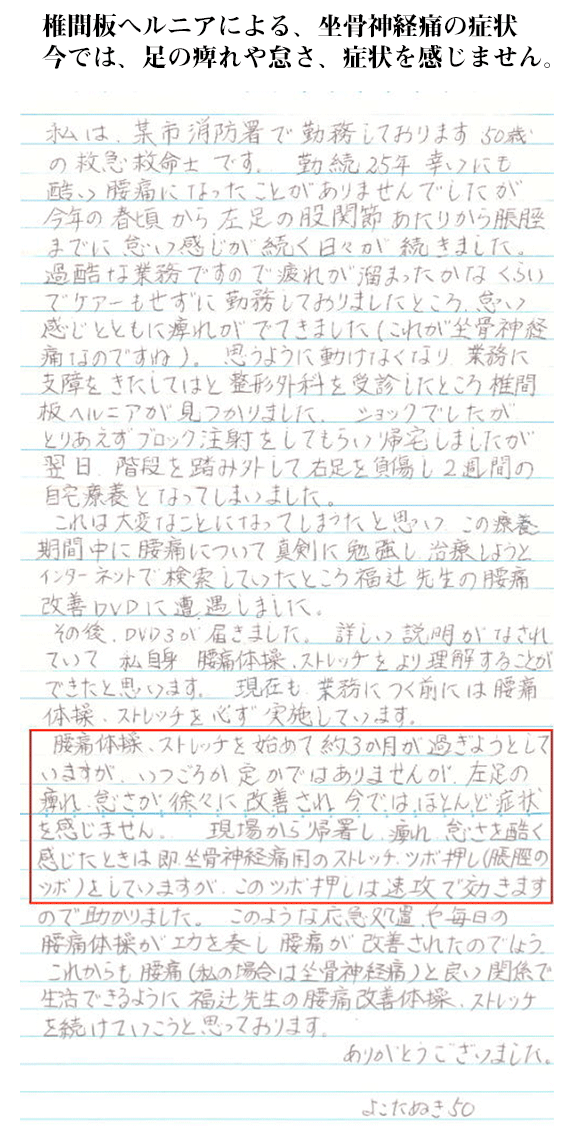 椎間板ヘルニアによる、坐骨神経痛の症状
今では、足の痺れや怠さ、症状を感じません。
私は、某市消防署で勤務しております50歳
の救急救命士です。 勤続25年 幸いにも
酷い腰痛になったことがありませんでしたが
今年の春頃から左足の股関節あたりから脹脛
までに怠い感じが続く日々が続きました。
過酷な業務ですので疲れが溜まったかなくらい
でケアーもせずに勤務しておりましたところ、怠い
感じとともに痺れがでてきました(これが坐骨神経
痛なのですね)。 思うように動けなくなり、業務に
支障をきたしてはと整形外科を受診したところ椎間
板ヘルニアが見つかりました。 ショックでしたが
とりあえずブロック注射をしてもらい帰宅しましたが
翌日、階段を踏み外して右足を負傷し2週間の
自宅療養となってしまいました。
これは大変なことになってしまうたと思い、この療養
期間中に腰痛について真剣に勉強し治療しようと
インターネットで検索していったところ福辻先生の腰痛
改善DVDに遭遇しました。
その後、DVD3が届きました。 詳しい説明がなされ
ていて 私自身 腰痛体操、ストレッチをより理解することが
できたと思います。 現在も、業務につく前には腰痛
体操、ストレッチを必ず実施しています。
腰痛体操、ストレッチを始めて約3か月が過ぎようとして
いますが、いつごろか定かではありませんが、左足の
痺れ、怠さが徐々に改善され、今では、ほとんど症状
を感じません。 現場から帰署し、痺れ、怠さを酷く
感じたときは即、坐骨神経痛用のストレッチ、ツボ押し(脹脛の
ツボ)をしていますが、このツボ押しは速攻で効きます
ので助かりました。 このような応急処置や毎日の
腰痛体操が工力を奏し 腰痛が改善されたのでしょう。
これからも腰痛(私の場合は坐骨神経痛)と良い関係で
生活できるように福辻先生の腰痛改善体操、ストレッチ
を続けていこうと思っております。
ありがとうございました。
よこたぬき50